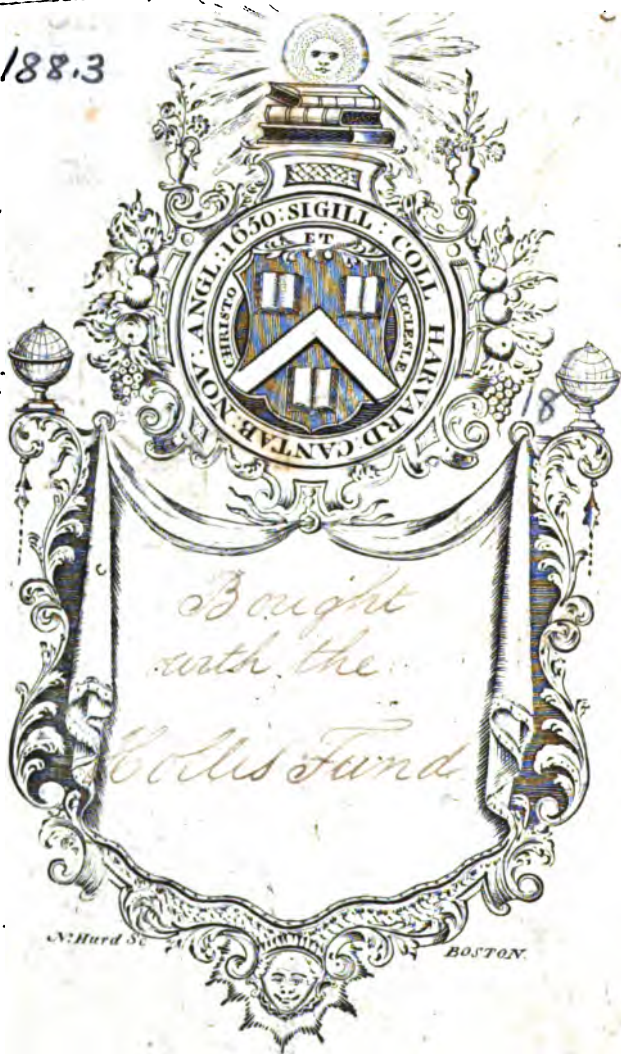 188.3
SIGILL : COLL HARVARD : CANTAB : NOV : ANGL : 1650 :
CHRISTO ET ECCLESIÆ
18
Bought
with the
Hollis Fund
N. Hurd Sc
BOSTON.